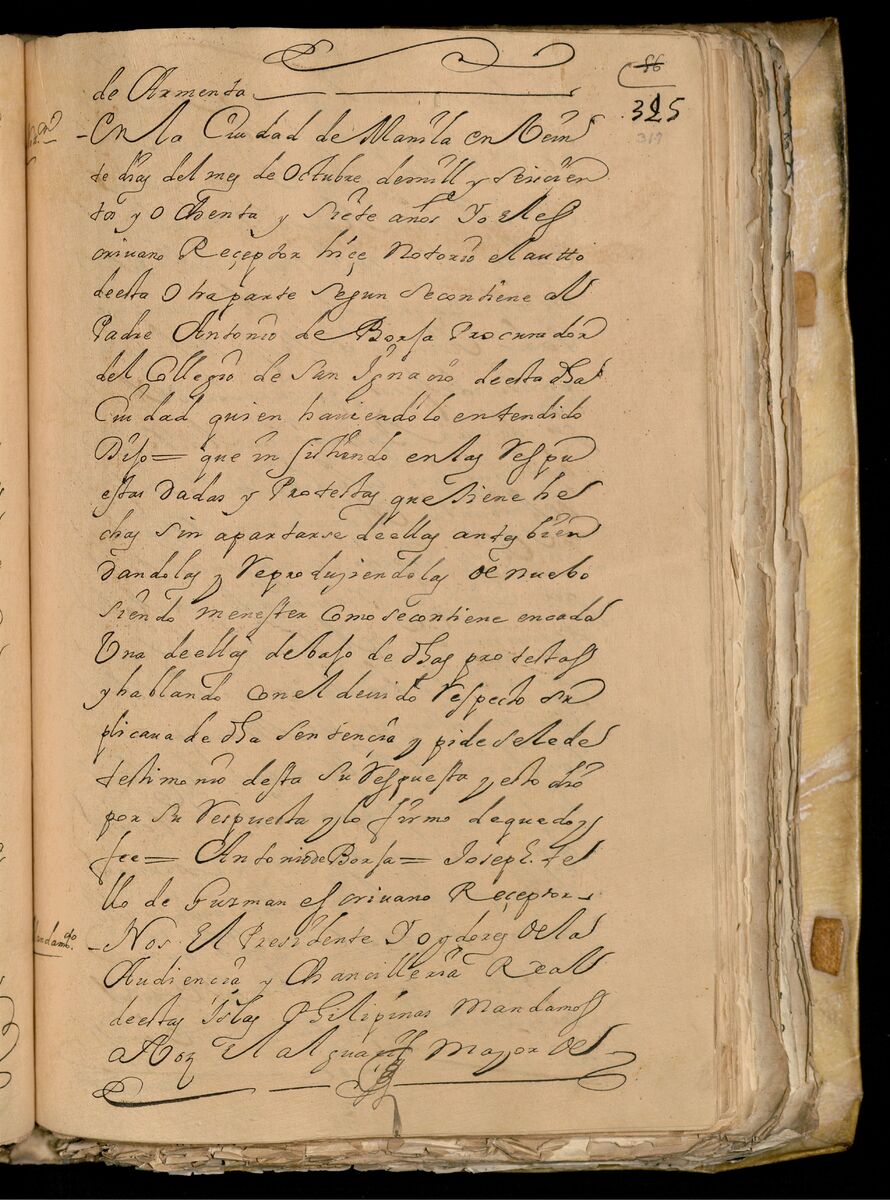 56
325
317
de Armenta
En la Ciudad de Manila en Vein
te dias del mes de Octubre de mill y seiscien
tos y ochenta y siete años Yo el es
crivano Receptor hiçe notorio el autto
de esta otra parte segun se contiene al
Padre Antonio de Borja Procurador
del Collegio de San Ignacio de esta dha
Ciudad quien haviendolo entendido
Dijo = que insistiendo en las Respu
estas dadas y Protestas que tiene he
chas sin apartarse de ellas antes bien
dandolas y Reprodujiendolas de nuebo
siendo menester como se contiene en cada
Una de ellas debajo de dhas protestas
y hablando con el devido Respecto su
plicava de dha sentencia y pide se le de
testimonio desta su Respuesta y esto dio
por su Respuesta y lo firmo de que doy
fee = Antonio de Borja = Joseph te
llo de Guzman es crivano Receptor
Mandamto.
Nos El Presidente Y oydores de la
Audiencia y Chancilleria Real
de estas Yslas Philipinas Mandamos
a Vos El alguacil mayor de